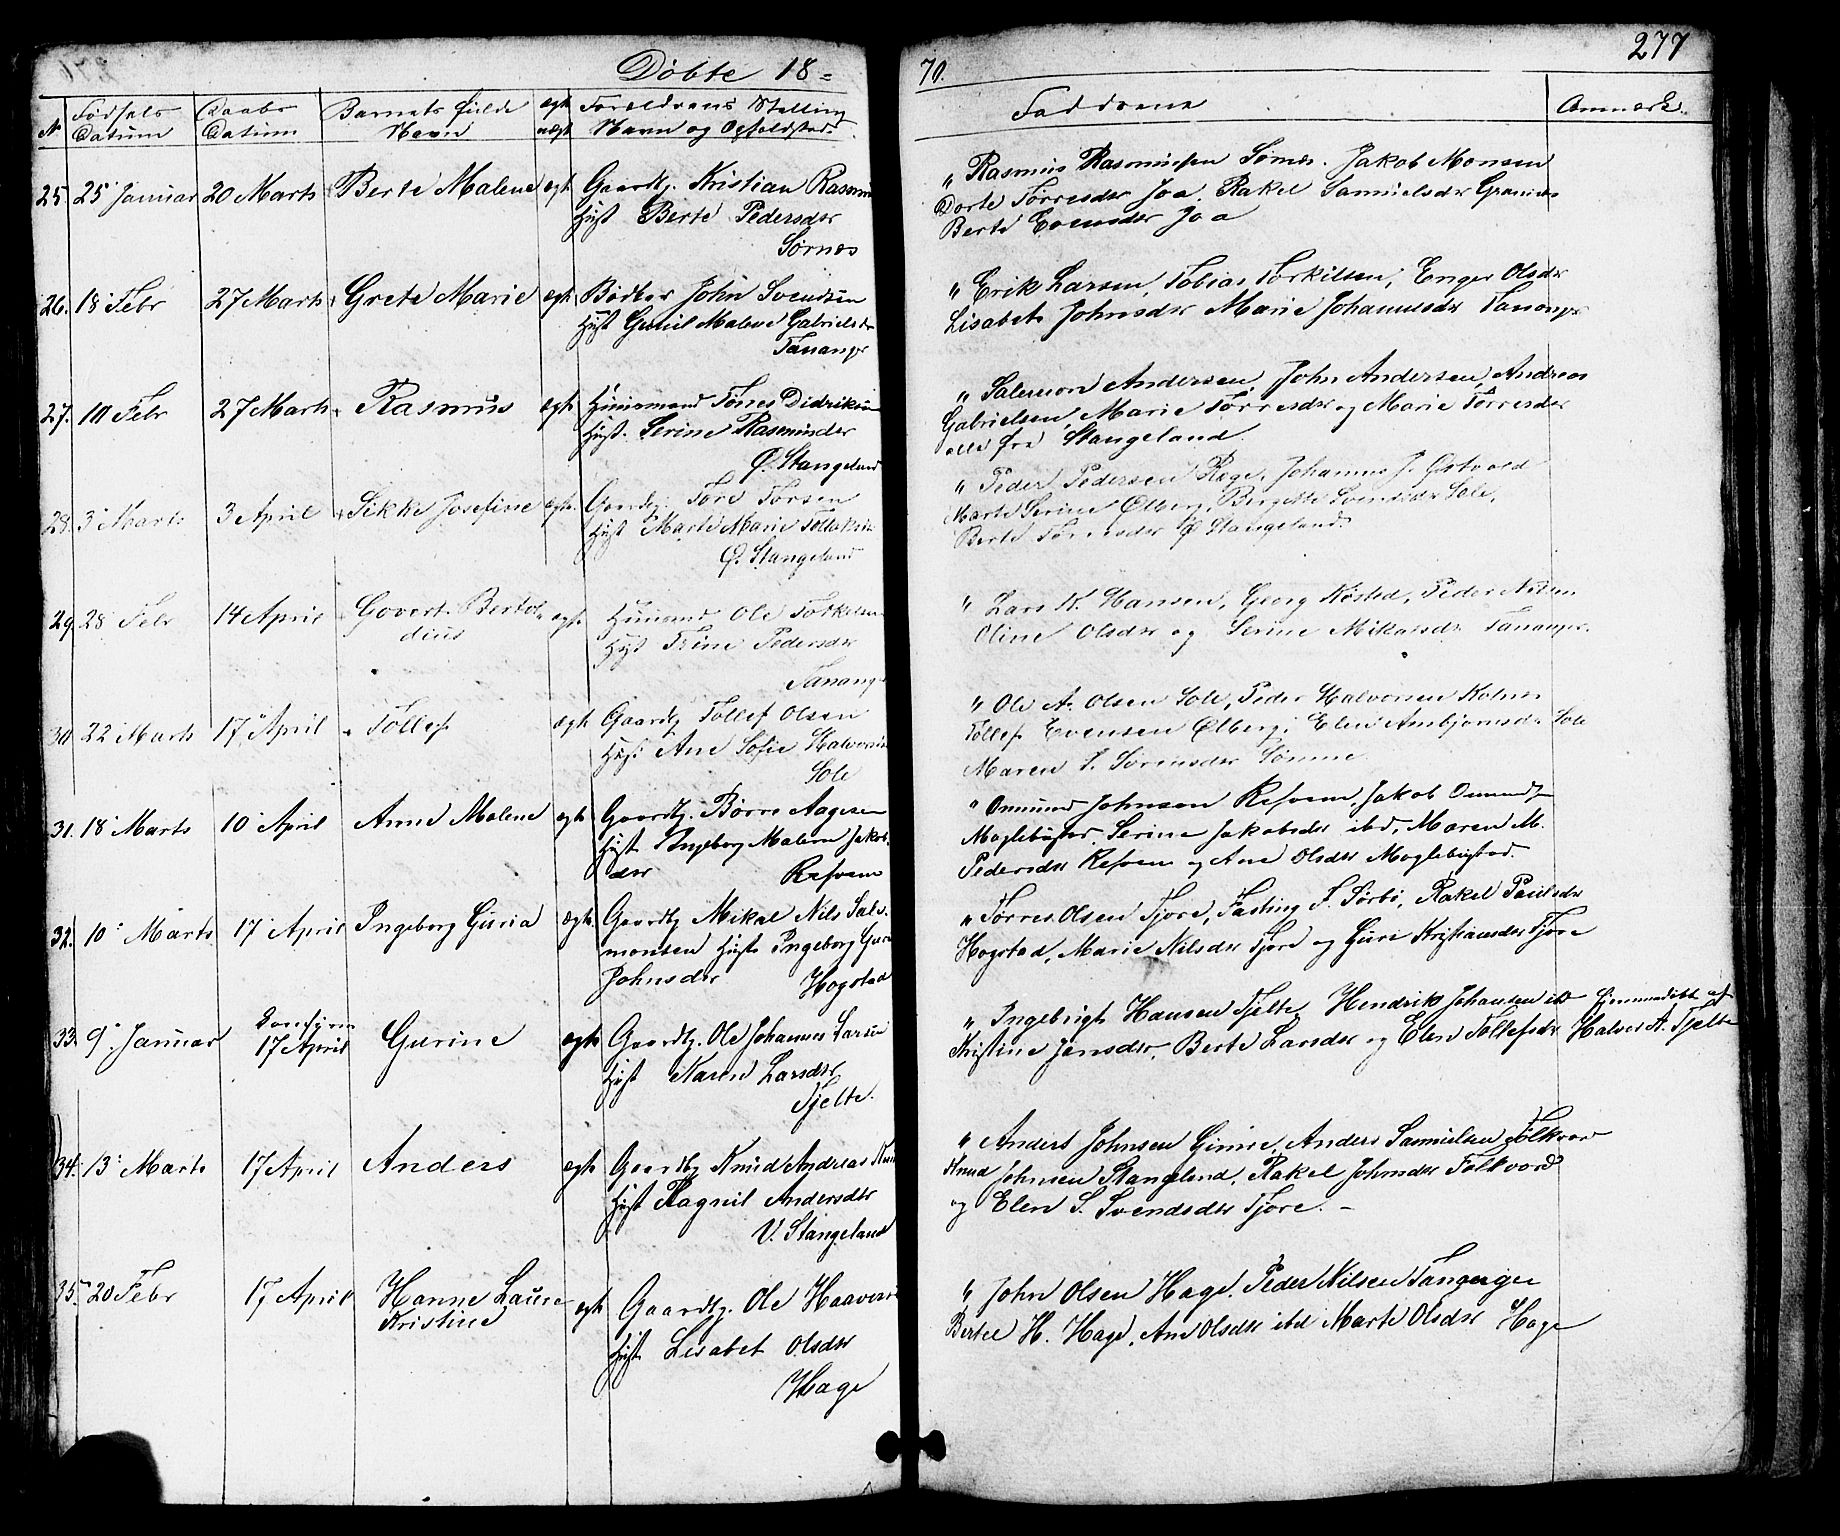 Døbte 18=
70.
277
No
Fødsels Datum
Daabs Datum
Barnets fulde Navn
ægt uægt
Forældrens Stilling Navn og Opholdsted
Faddrene
Anmærk.
25. 25 Januar 20 Marts Berte Malene ægt Gaardbg. Kristian Rasmus
Hust Berte Pedersdtr
Sørnæs
" Rasmus Rasmussen Sømæ. Jakob Monsen
Dorte Tørresdtr Joa, Rakel Samuelsdtr Grannes
Berte Evensdtr Joa
26. 18 Febr 27 Marts Grete Marie ægt Bødker John Svendsen
Hust Gunil Malene Gabrielsdtr
Tananger
" Erik Larsen, Tobias Torkilsen, Enger Olsdtr
Lisabet Johnsdtr Marie Johannesdtr Tananger
27. 10 Febr 27 Marts Rasmus ægt Huusmand Tønes Didriksen
Hust. Serine Rasmusdtr
Ø. Stangeland
" Salemon Andersen, John Andersen, Andreas
Gabrielsen, Marie Tørresdtr og Marie Tørresdtr
alle fra Stangeland.
28. 3 Marts 3 April Sikke Josefine ægt. Gaardbg. Tore Torsen
Hust Marte Marie Tollaksdtr
Ø. Stangeland
" Peder Pedersen Rege, Johannes J. Østvold
Marte Serine Ølberg, Birgitte Svensdtr Sole,
Berte Tørresdtr Ø Stangeland.
29. 28 Febr 14 April Govert Bertol=
dius
ægt Huusmd Ole Torkelsen
Hust Trine Pedersdtr
Tananger
" Lars K. Hansen, Georg Kösted, Peder
Oline Olsdtr og Serine Mikalsdtr Tananger.
30 22 Marts 17 April Tollef ægt Gaardbg Tollef Olsen
Hust Ane Sofie Halvorsdtr
Sole
" Ole A. Olsen Sole, Peder Halvorsen Kolnes
Tollef Evensen Ølberg, Elen Ambjørnsdr Sole
Maren S. Sørensdtr Sømme
31. 18 Marts 10 April Anne Malene ægt Gaardbg. Børre Aagesen
Hust Ingeborg Malene Jakob.
dtr Refsem
" Omund Johnsen Refsem, Jakob Omundsen
Maglebustad, Serine Jakobsdtr ibd, Maren M.
Pedersdtr Refsem og Ane Olsdtr Maglebustad.
32. 10 Marts 17 April Ingeborg Guria ægt. Gaardbg Mikal Nils Salo-
monsen Hust Ingeborg Guri
Johnsdtr Hogstad
" Tørres Olsen Tjore, Fasting F. Sørbø, Rakel Paulsdtr
Hogstad, Marie Nilsdtr Tjore og Guri Kristiansdtr Tjore
33. 9 Januar 17 April Gurine ægt Gaardbg. Ole Johannes Larsen
Hust Karen Larsdtr
Tjelte.
" Ingebrigt Hansen Tjelte, Hendrik Johansen ibd
Kristine Jensdtr, Berte Larsdtr og Elen Tollefsdtr
hjemmedøbt af
Halvor A. Tjelte
34. 13 Marts 17 April Anders ægt Gaardbg Knud Andreas
Hust Ragnil Andersdtr
V. Stangeland
" Anders Johnsen Gimre, Anders Samuelsen Folkvor
Knud Johnsen Stangeland, Rakel Johnsdtr Folkvord
og Elen S. Svendsdtr Tjore. -
35. 20 Febr 17 April Hanne Laure
Kristine
ægt Gaardbg. Ole Haavers
Hust Lisabet Olsdtr
Hage
" John Olsen Hage. Peder Nilsen Tananger
Bertel H. Hage, Ane Olsdtr ibd Marte Olsdtr Hage